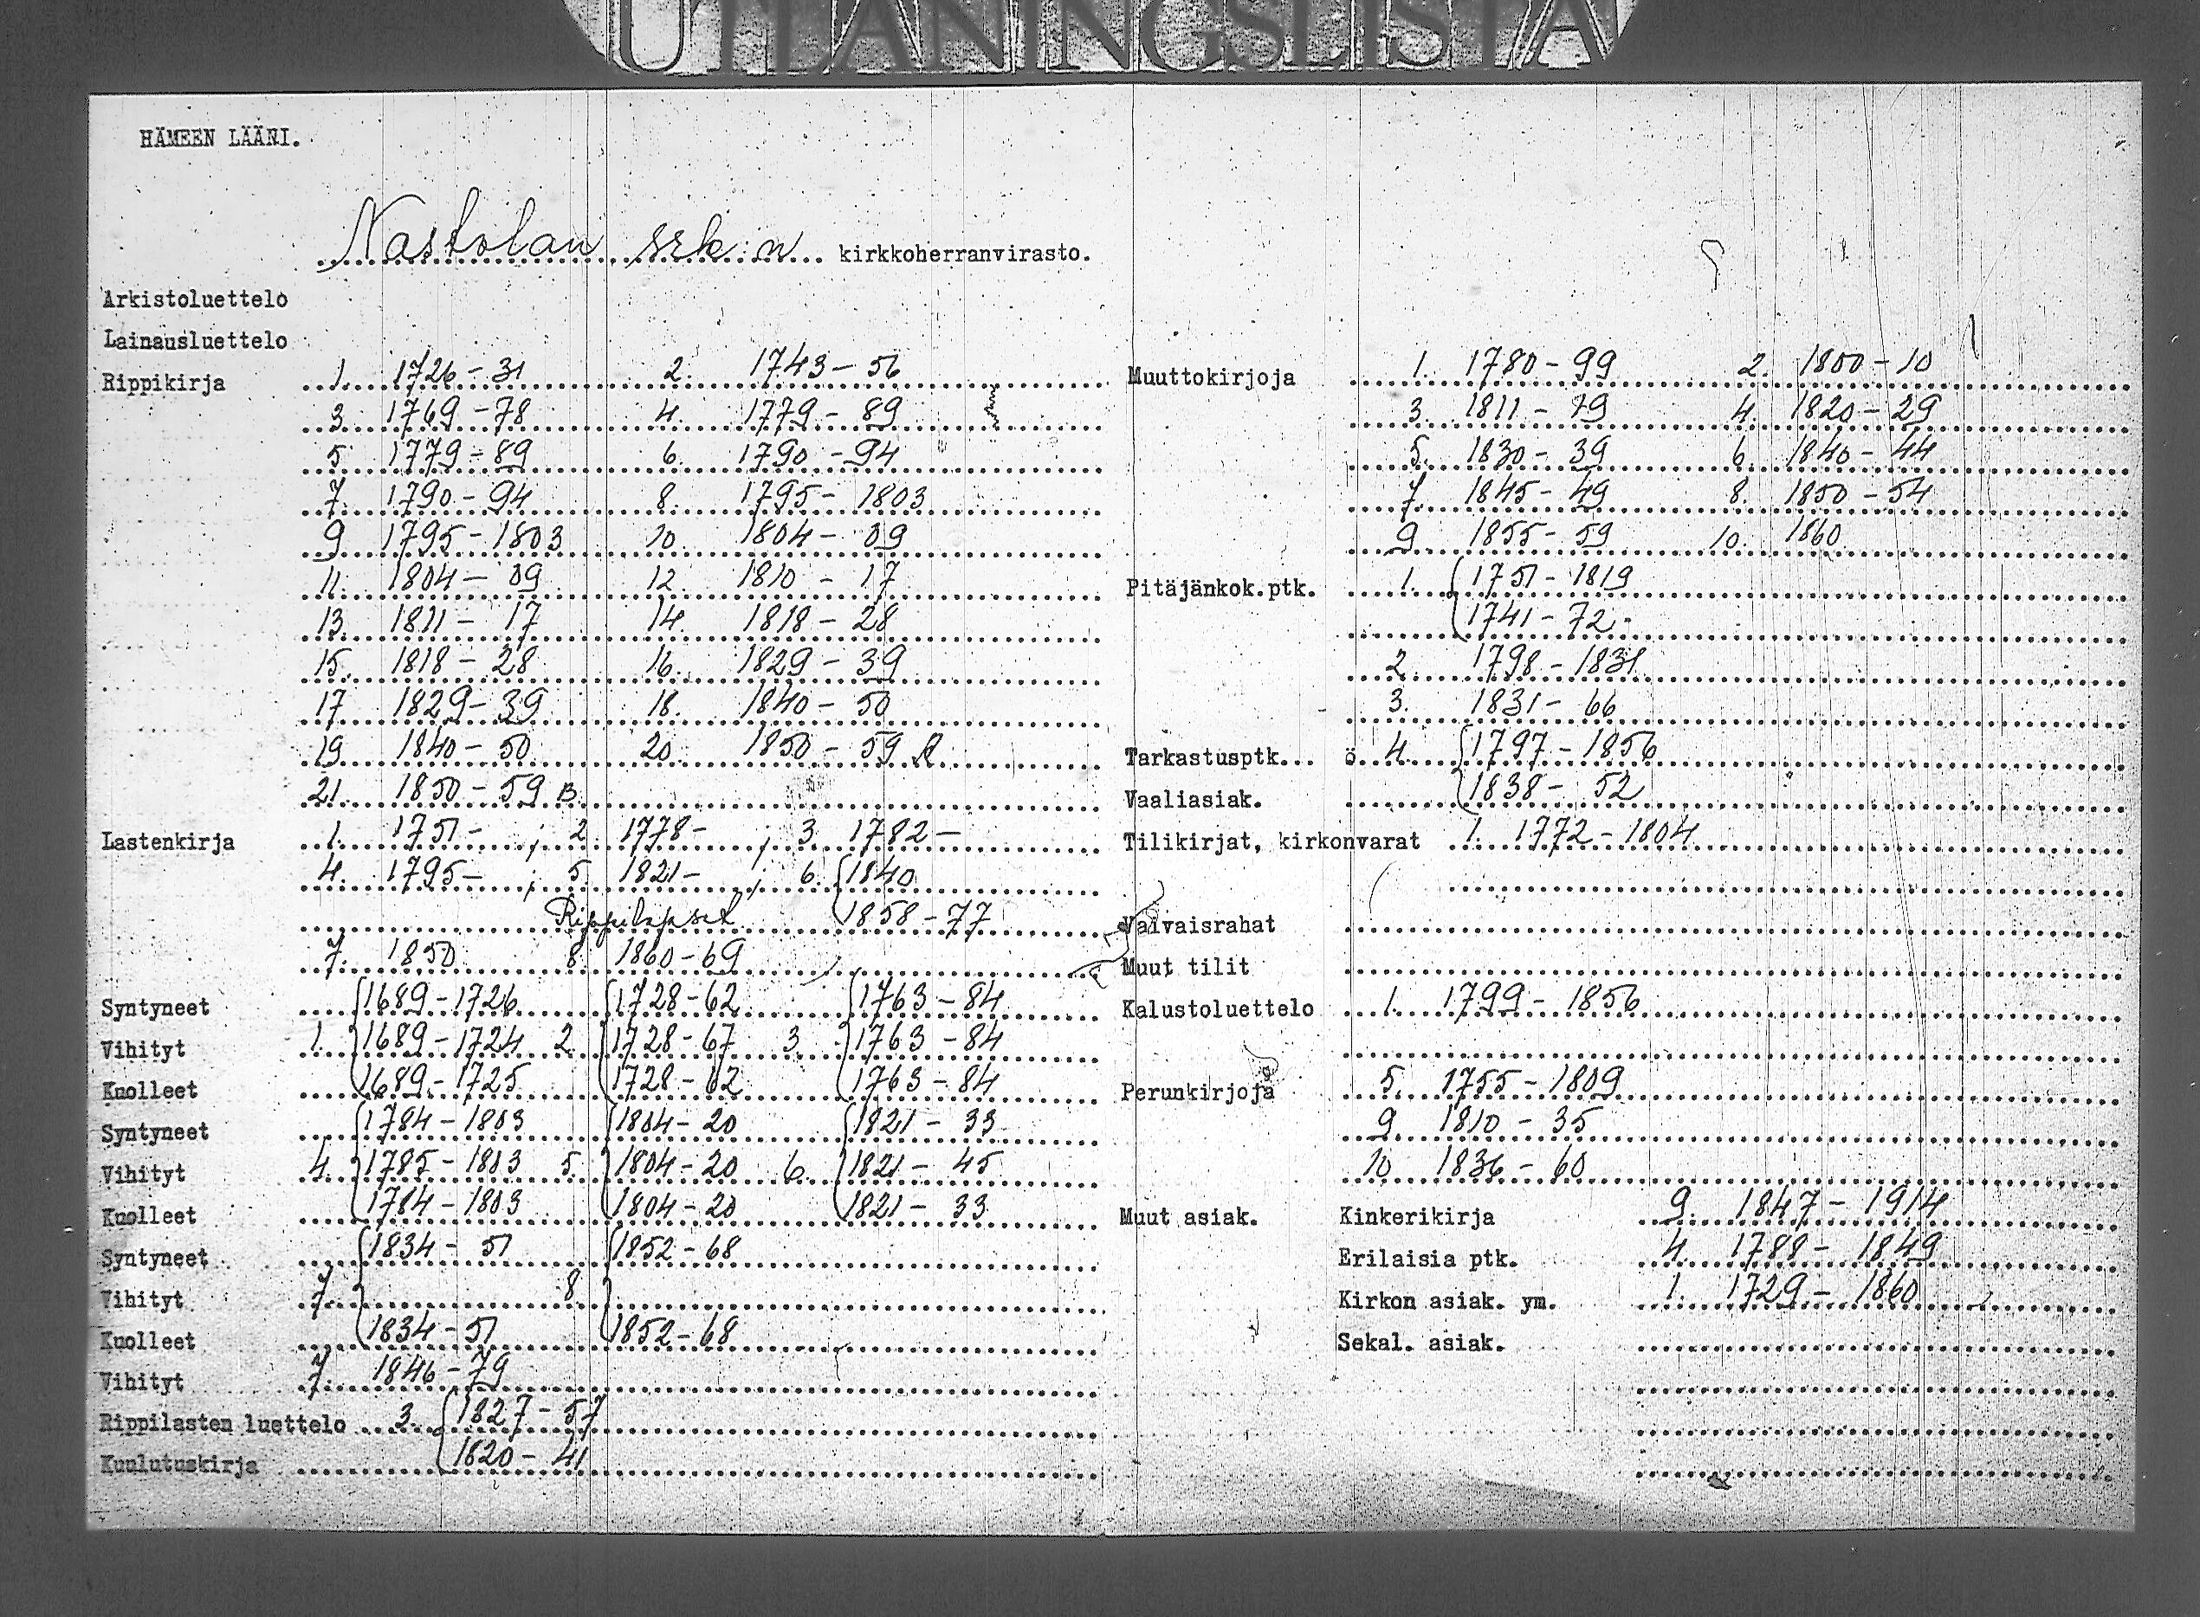 UTLÅNINGSLISTA
HÄMEEN LÄÄNI.
Nastolan srk:n kirkkoherranvirasto.
Arkistoluettelo
Lainausluettelo
Rippikirja 1. 1726-31 2. 1743-56
3. 1769-78 4. 1779-89
5 1779-89 6. 1790-94
7. 1790-94 8. 1795-1803
9 1795-1803 10. 1804-09
11. 1804-09 12. 1810-17
13. 1811-17 14. 1818-28
15. 1818-28 16. 1829-39
17 1829-39 18. 1840-50
19 1840-50 20. 1850-59 A
21. 1850-59 B
Lastenkirja 1. 1751- ; 2 1778- ; 3 1782-
4. 1795- ; 5. 1821- ; 6. 1840
Rippilapset 1858-77
7. 1850 8. 1860-69
Syntyneet 1689-1726 1728-62 1763-84
Vihityt 1. 1689-1724 2. 1728-67 3. 1763-84
Kuolleet 1689-1725 1728-62 1763-84
Syntyneet 1784-1803 1804-20 1821-33
Vihityt 4. 1785-1803 5. 1804-20 6. 1821-45
Kuolleet 1784-1803 1804-20 1821-33
Syntyneet 1834-51 1852-68
Vihityt 7. 8
Kuolleet 1834-51 1852-68
Vihityt 7. 1846-79
Rippilasten luettelo 3. 1827-57
Kuulutuskirja 1820-41
Muuttokirjoja 1. 1780-99 2. 1800-10
3. 1811-19 4. 1820-29
5. 1830-39 6. 1840-44
7. 1845-49 8. 1850-54
9 1855-59 10. 1860
Pitäjänkok.ptk. 1. 1751-1819
1741-72
2. 1798-1831
3. 1831-66
Tarkastusptk... ö 4. 1797-1856
Vaaliasiak. 1838-52
Tilikirjat, kirkonvarat 1. 1772-1804
Vaivaisrahat
Muut tilit
Kalustoluettelo 1. 1799-1856
Perunkirjoja 5. 1755-1809
9 1810-35
10 1836-60
Muut asiak. Kinkerikirja 9. 1847-1914
Erilaisia ptk. 4. 1788-1849
Kirkon asiak. ym. 1. 1729-1860
Sekal. asiak.